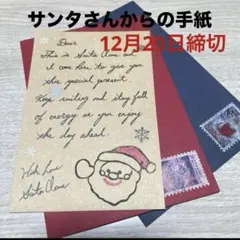 サンタさんからの手紙
12月20日締切
Dear.
This is Santa Claus and
I come here to give you
the special present.
Keep smiling and stay full
of energy as you enjoy
the day ahead.
With Love
Santa Claus